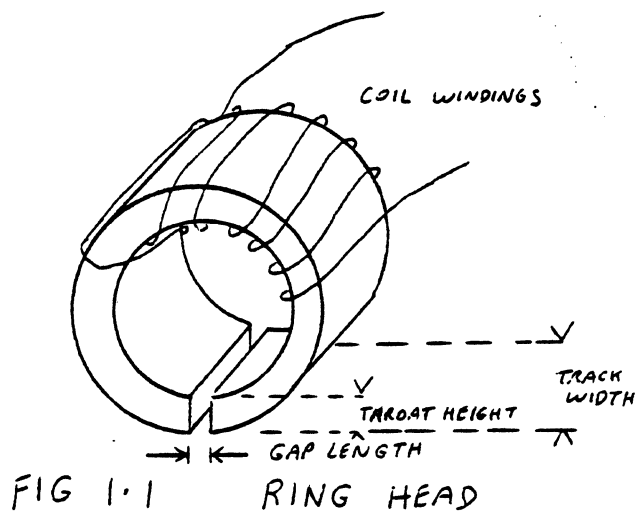 COIL WINDINGS
TRACK
WIDTH
THROAT HEIGHT
GAP LENGTH
FIG 1.1 RING HEAD